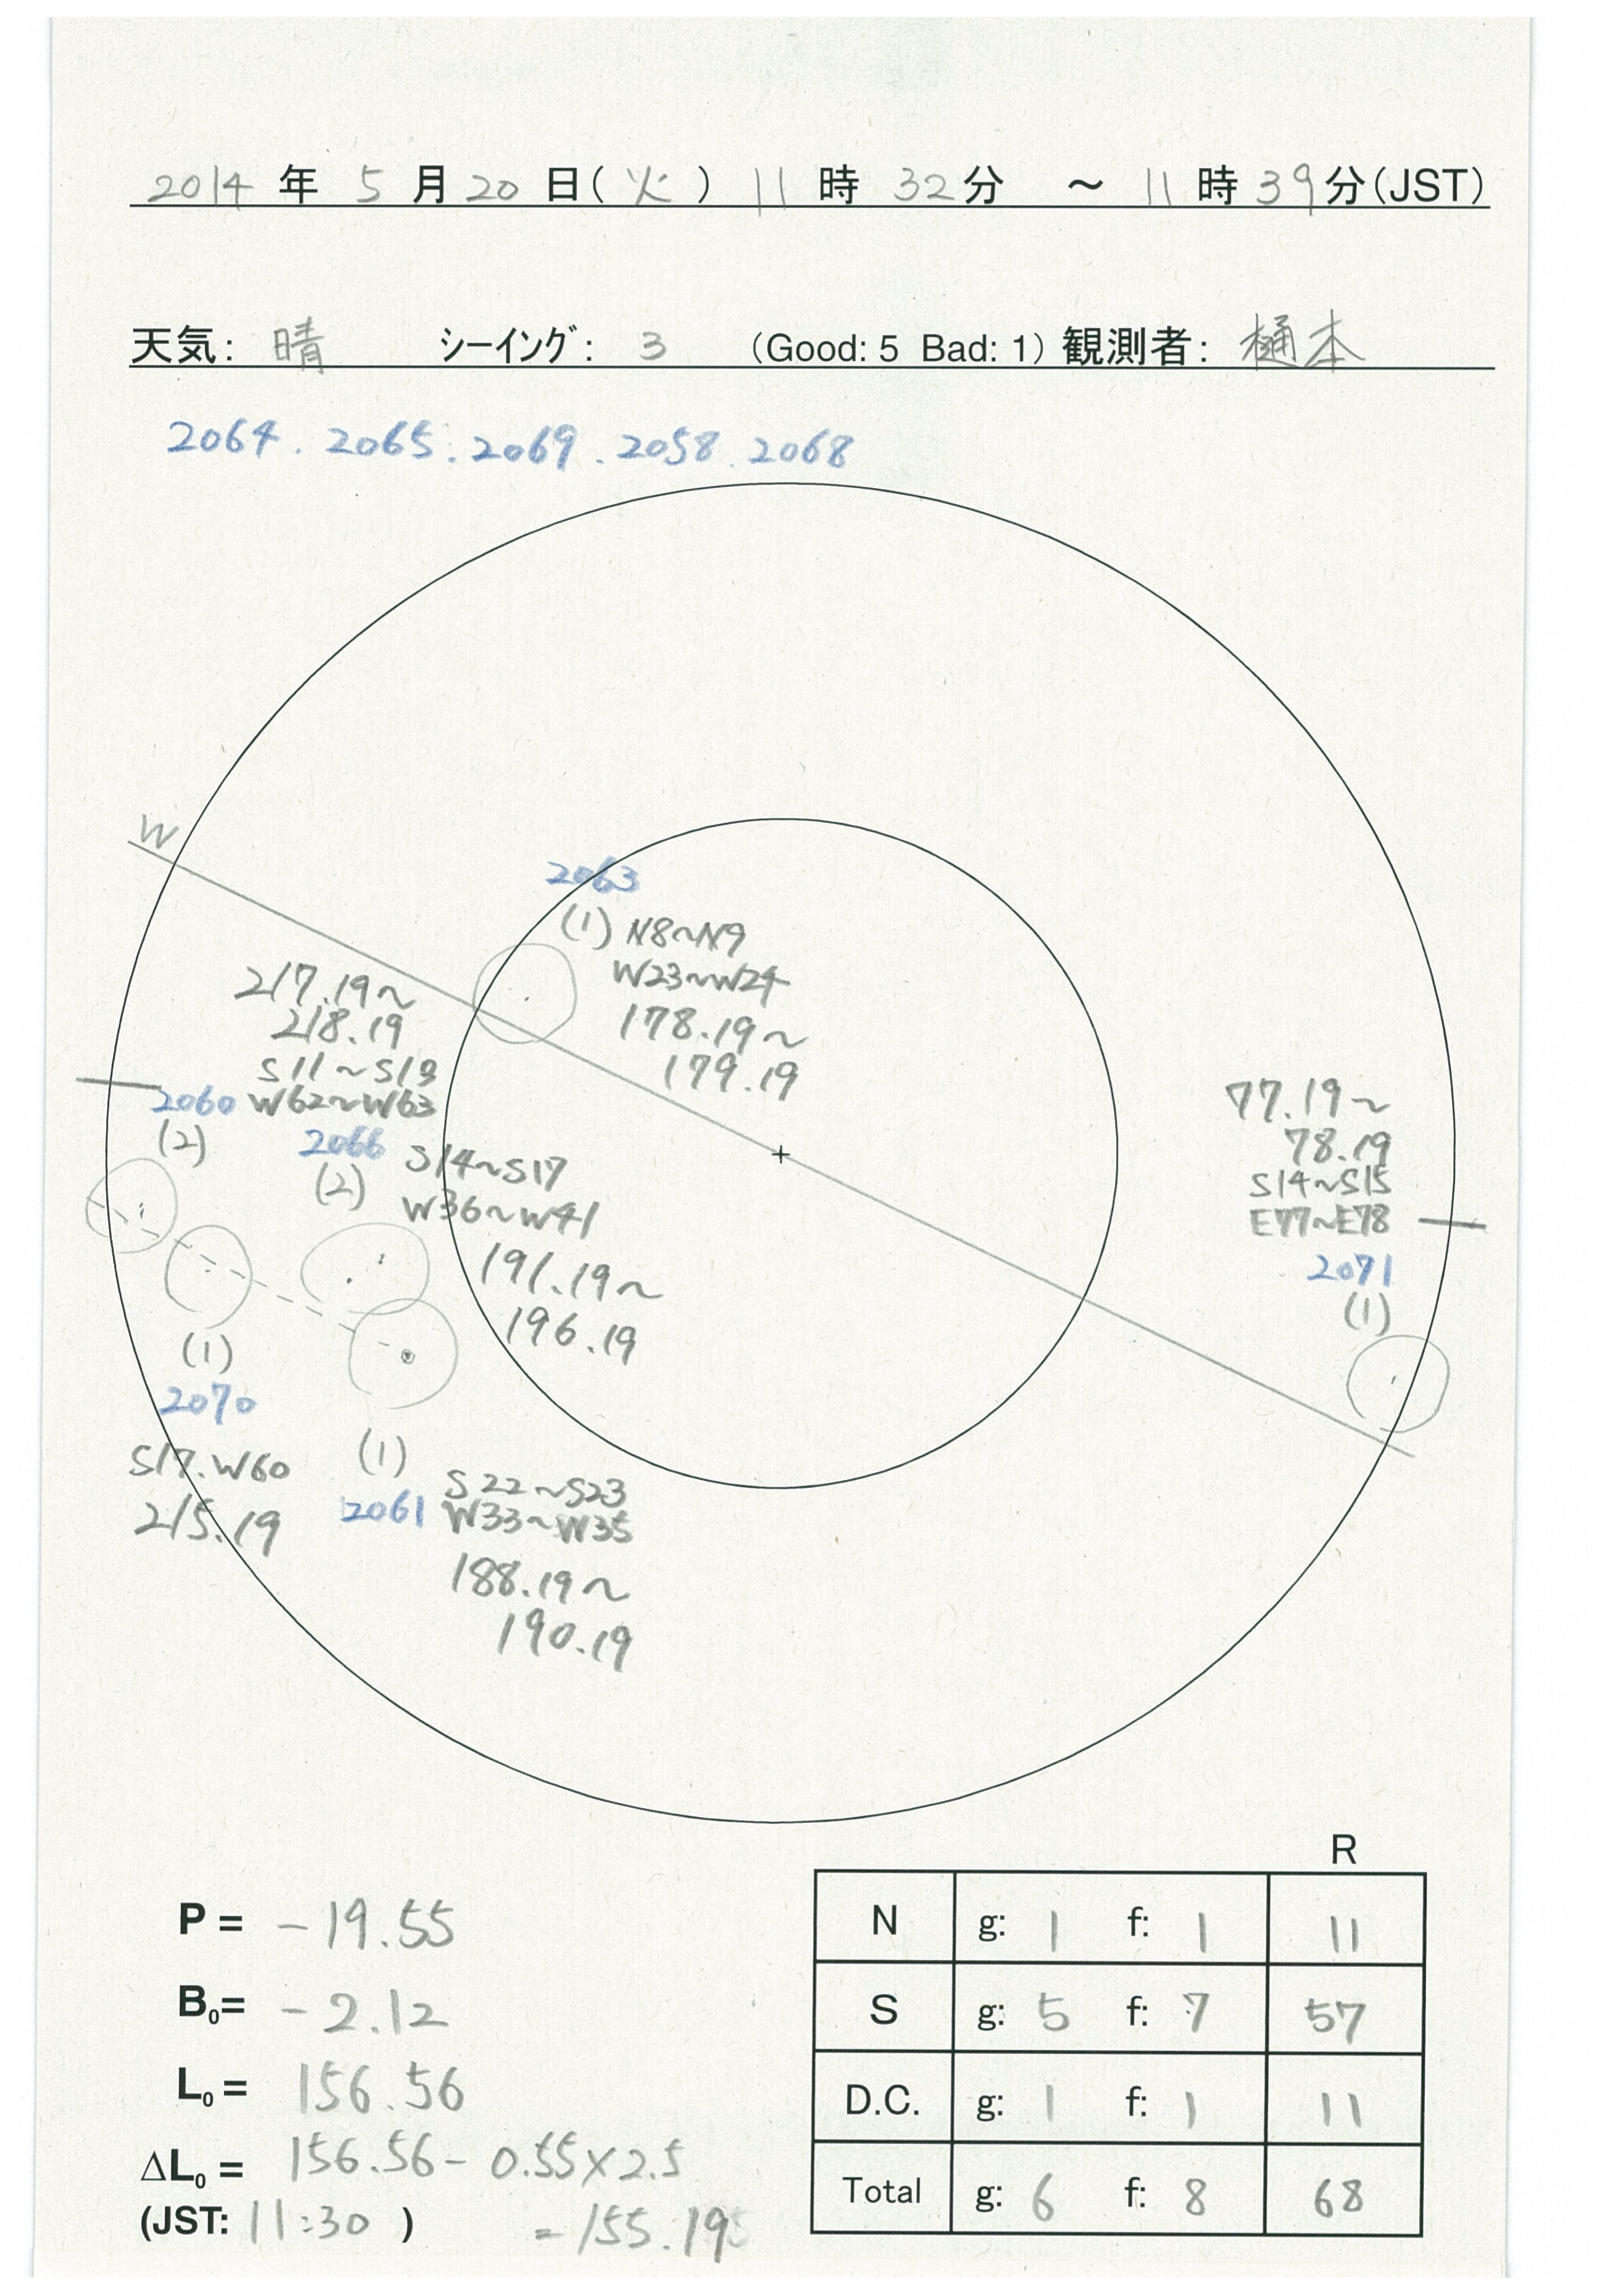 2014 年 5 月 20 日(火) 11 時 32 分 ～ 11 時 39 分(JST)
天気: 晴 シーイング: 3 (Good: 5 Bad: 1) 観測者: 樋本
2064. 2065. 2069. 2058. 2068
W
2063
(1) N8~N9
W23~W24
178.19~
179.19
217.19~
218.19
S11~S13
2060 W62~W63
(2)
2066
(2)
S14~S17
W36~W41
191.19~
196.19
77.19~
78.19
S14~S15
E77~E78
2071
(1)
(1)
2070
S17.W60
215.19
(1)
2061
S22~S23
W33~W35
188.19~
190.19
P = -19.55
B₀= -2.12
L₀ = 156.56
ΔL₀ = 156.56 - 0.55×2.5
(JST: 11:30 ) = 155.195
R
N g: 1 f: 1 11
S g: 5 f: 7 57
D.C. g: 1 f: 1 11
Total g: 6 f: 8 68